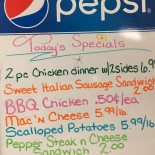 pepsi
Today's Specials
2 pc Chicken dinner w/2sides 6.99
Sweet Italian Sausage Sandwich
2.00
BBQ Chicken .50¢/ea
Mac 'n Cheese 5.99/lb
Scalloped Potatoes 5.99/lb
Pepper Steak n Cheese
Sandwich 2.00